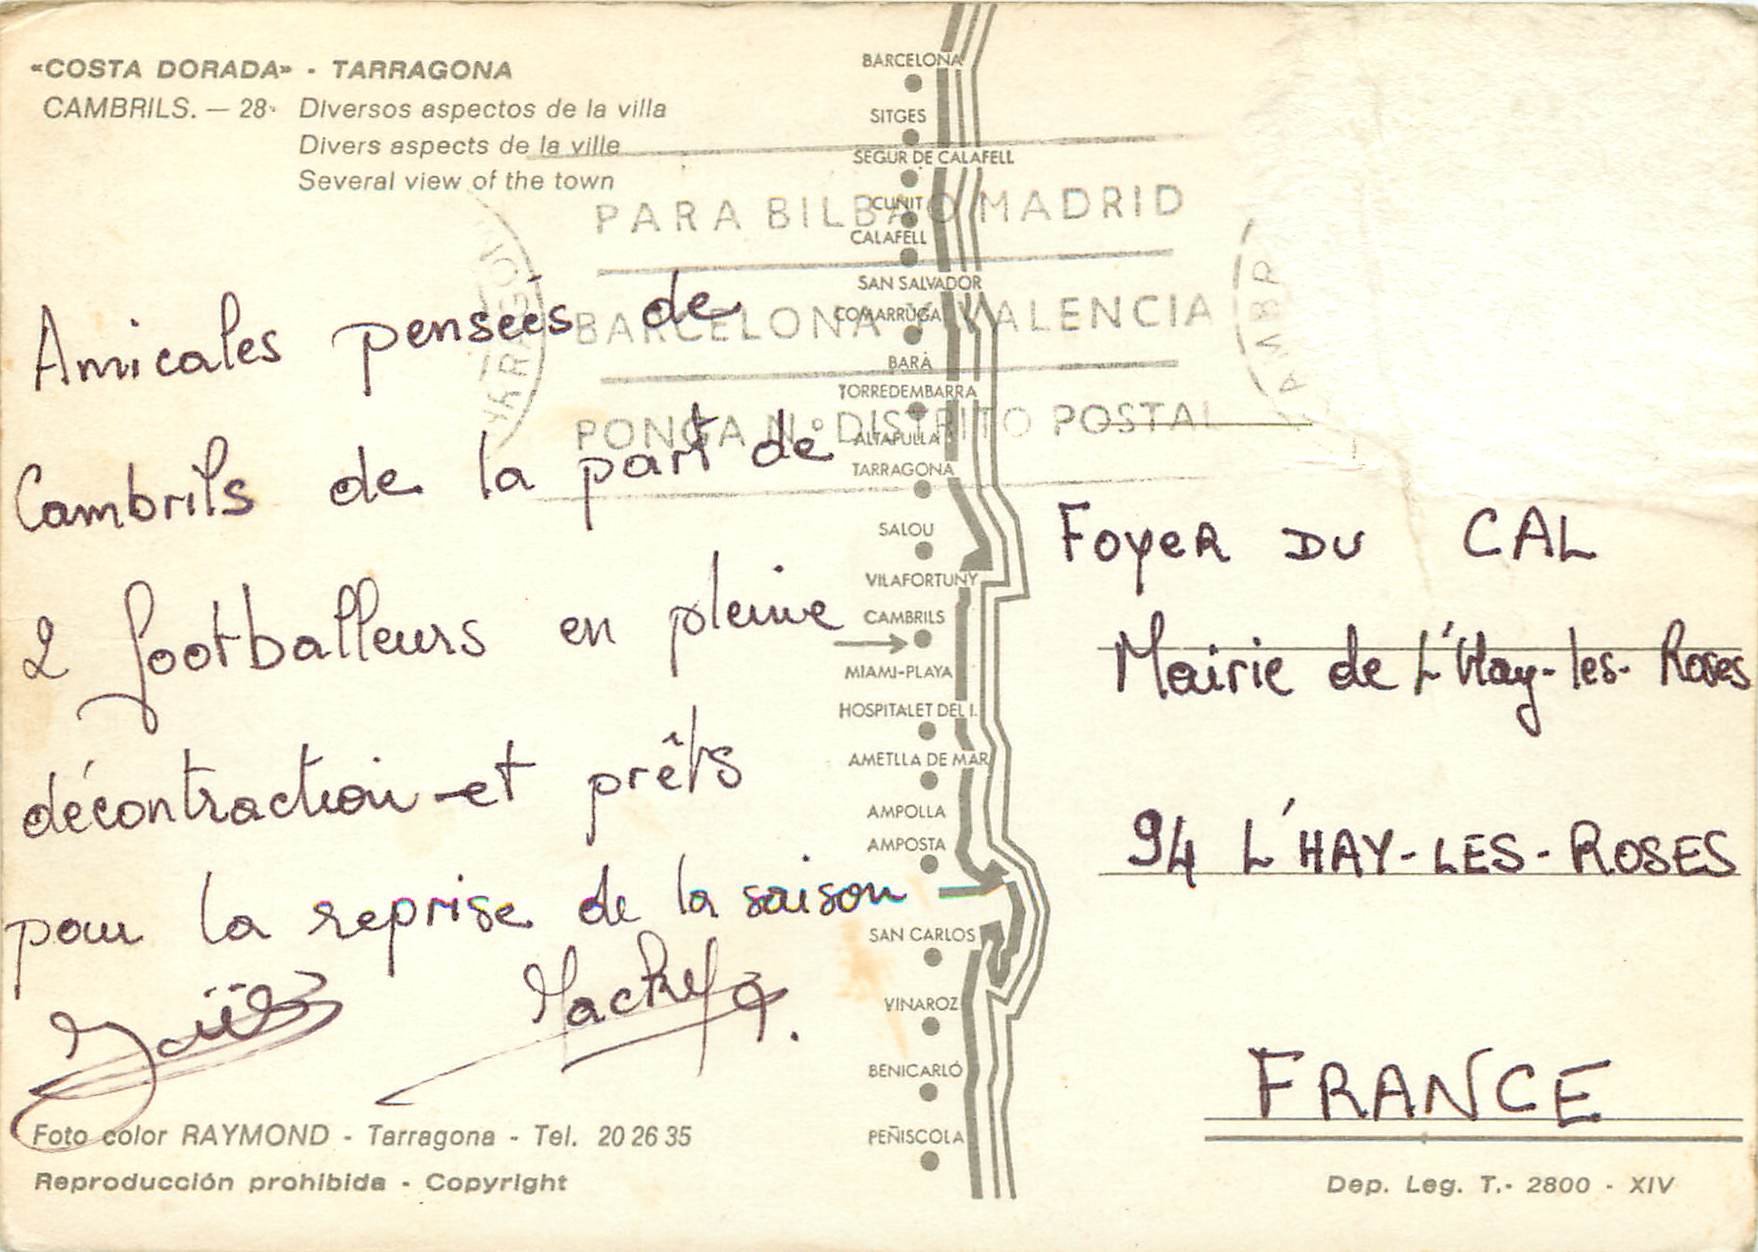 «COSTA DORADA» - TARRAGONA
CAMBRILS. — 28· Diversos aspectos de la villa
Divers aspects de la ville
Several view of the town
Amicales pensées de
Cambrils de la part de
2 footballeurs en pleine
décontraction et prêts
pour la reprise de la saison
Foto color RAYMOND - Tarragona - Tel. 20 26 35
Reproducción prohibida - Copyright
BARCELONA
SITGES
SEGUR DE CALAFELL
CUNIT
CALAFELL
SAN SALVADOR
COMARRUGA
BARÁ
TORREDEMBARRA
ALTAFULLA
TARRAGONA
SALOU
VILAFORTUNY
CAMBRILS
MIAMI-PLAYA
HOSPITALET DEL I.
AMETLLA DE MAR
AMPOLLA
AMPOSTA
SAN CARLOS
VINAROZ
BENICARLÓ
PEÑISCOLA
PARA BILBAO MADRID
BARCELONA Y VALENCIA
PONGA N.º DISTRITO POSTAL
FOYER DU CAL
Mairie de L'Hay-les-Roses
94 L'HAY-LES-ROSES
FRANCE
Dep. Leg. T.- 2800 - XIV